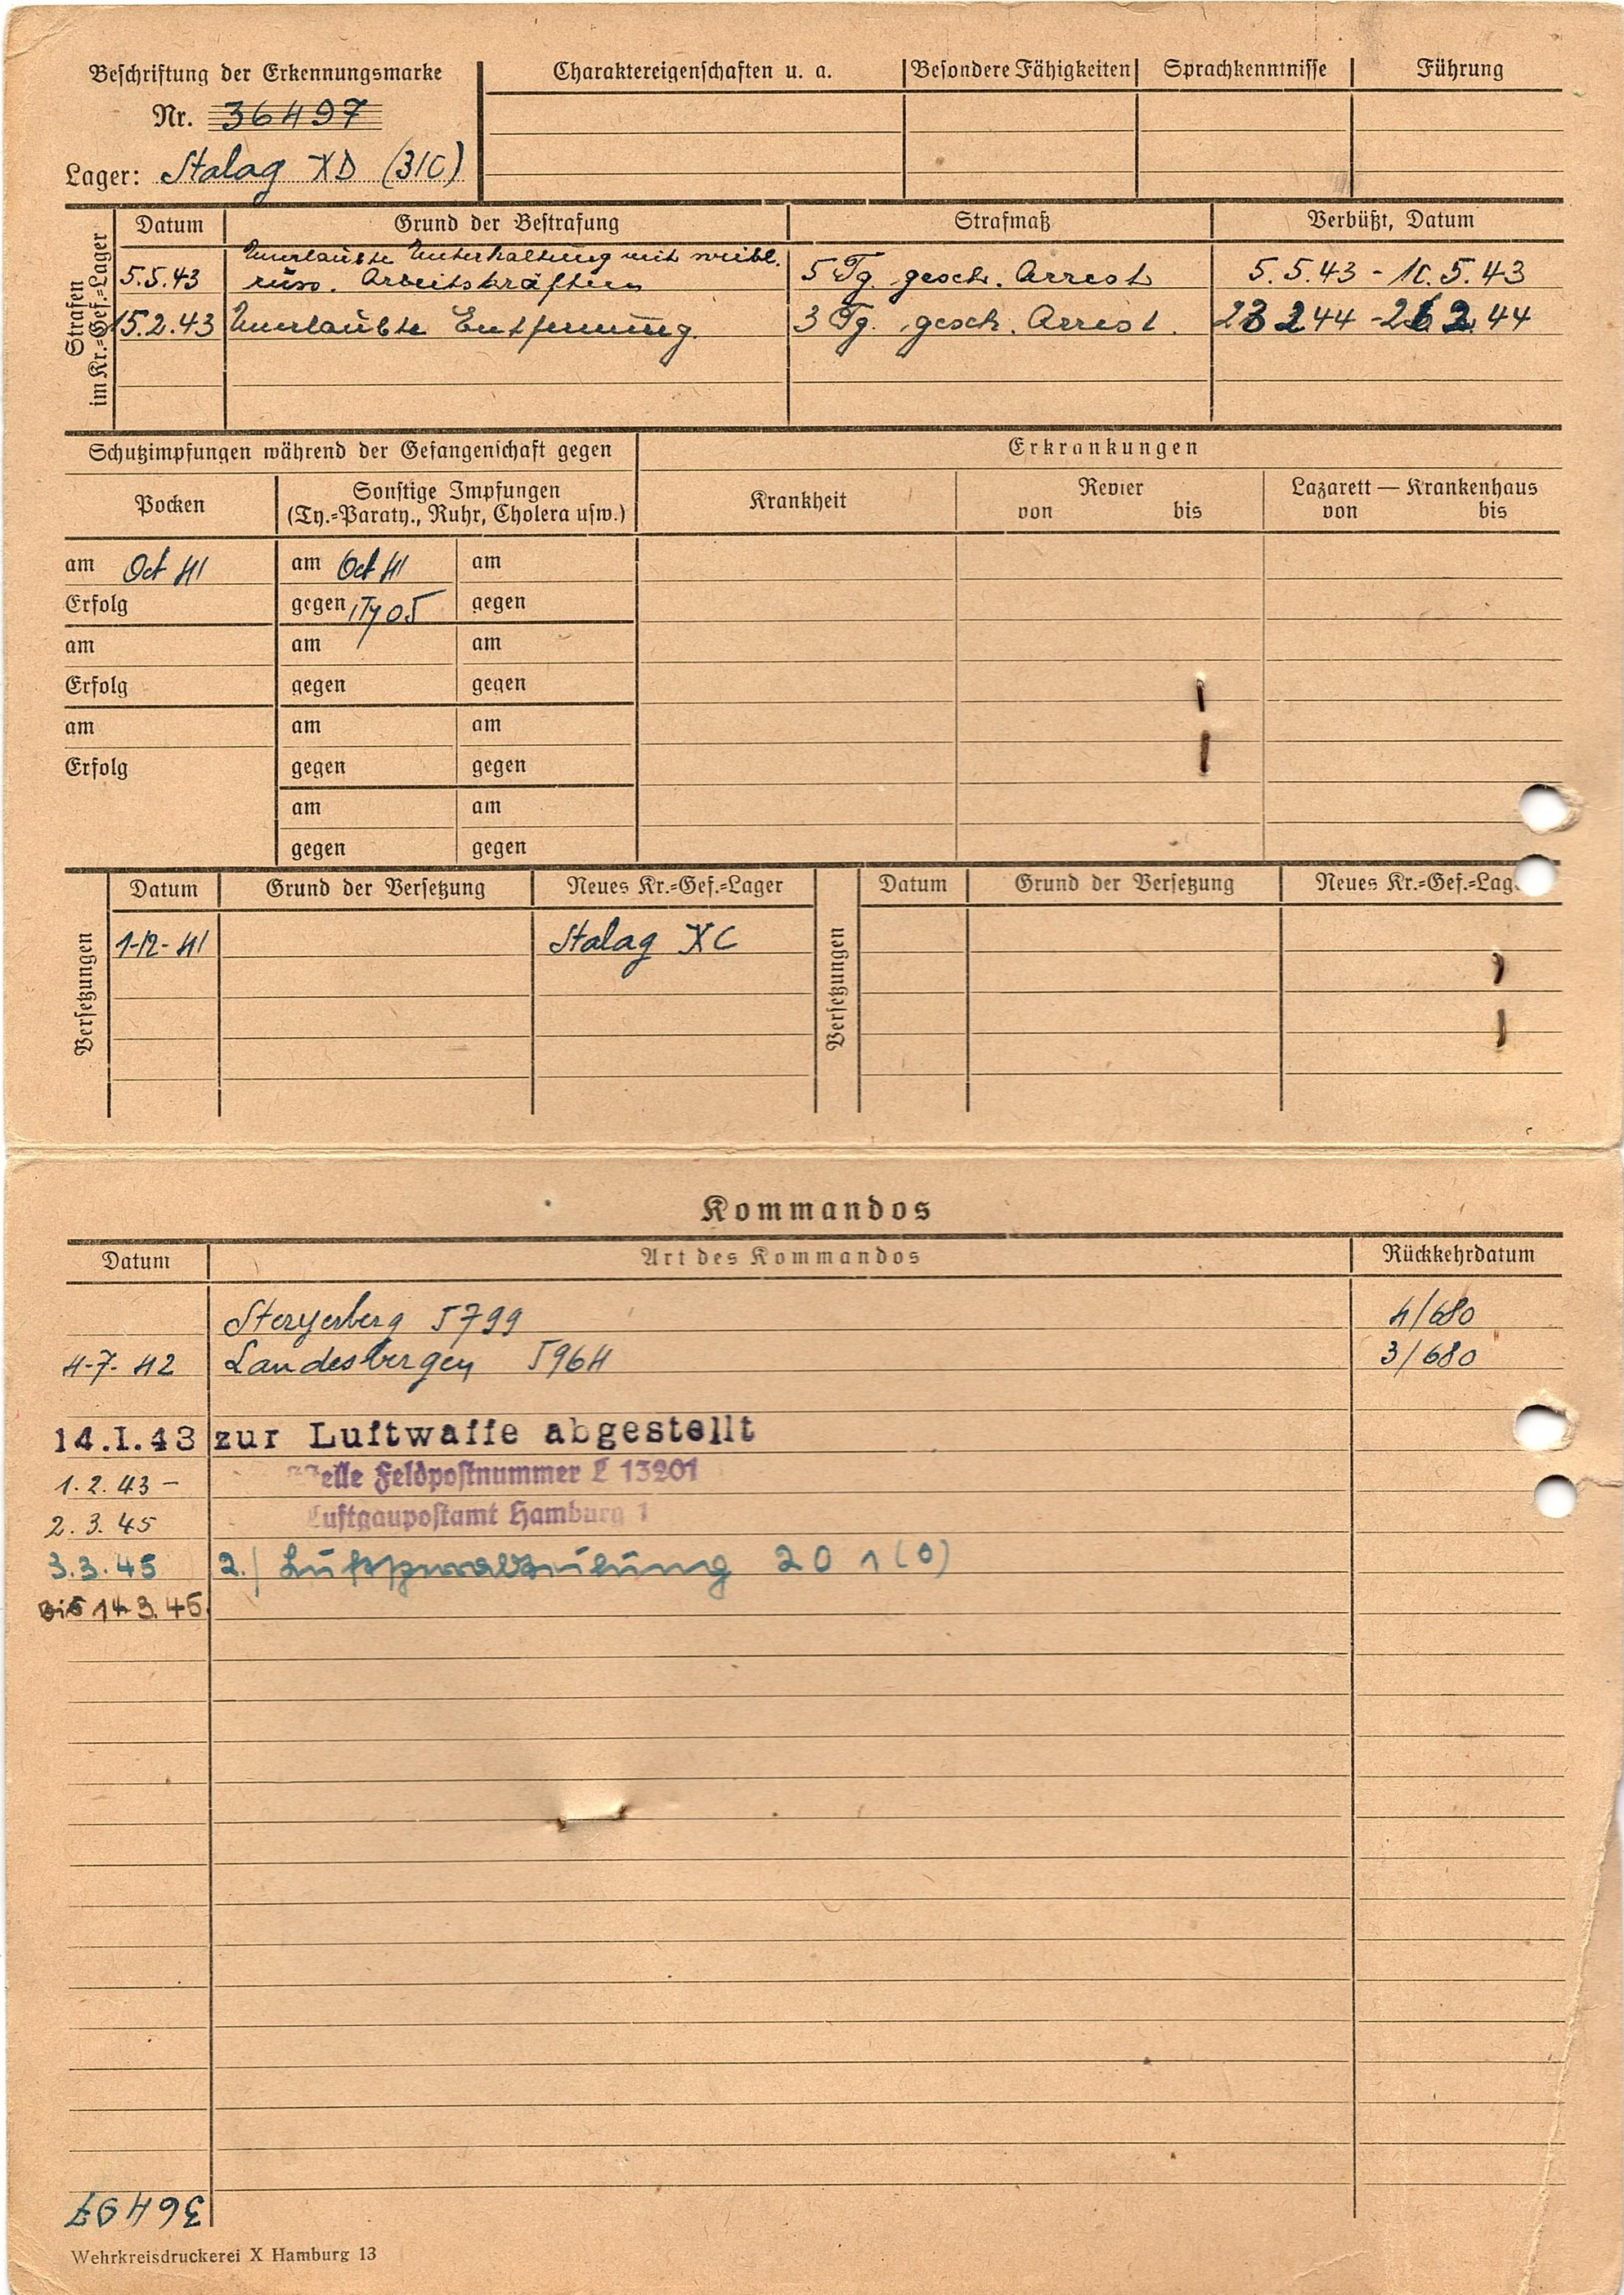 Beschriftung der Erkennungsmarke
Nr. 36497
Lager: Stalag XD (31C)
Charaktereigenschaften u. a. Besondere Fähigkeiten Sprachkenntnisse Führung
Strafen
im Kr.=Gef.=Lager
Datum Grund der Bestrafung Strafmaß Verbüßt, Datum
5.5.43 Unerlaubte Unterhaltung mit weibl.
russ. Arbeitskräften 5 Tg. gesch. Arrest 5.5.43 - 10.5.43
15.2.43 Unerlaubte Entfernung. 3 Tg. gesch. Arrest. 23 2 44 - 26 2. 44
Schutzimpfungen während der Gefangenschaft gegen Erkrankungen
Pocken Sonstige Impfungen
(Ty.=Paraty., Ruhr, Cholera usw.) Krankheit Revier
von bis Lazarett — Krankenhaus
von bis
am Oct 41 am Oct 41 am
Erfolg gegen gegen
am am am
Erfolg gegen gegen
am am am
Erfolg gegen gegen
am am
gegen gegen
Versetzungen
Datum Grund der Versetzung Neues Kr.=Gef.=Lager
1-12-41 Stalag XC
Versetzungen
Datum Grund der Versetzung Neues Kr.=Gef.=Lag
Kommandos
Datum Art des Kommandos Rückkehrdatum
Steyerberg 5799 4/680
4-7-42 Landesbergen 5964 3/680
14.I.43 zur Luftwaffe abgestellt
1.2.43 - elle Feldpostnummer L 13201
2.3.45 Luftgaupostamt Hamburg 1
3.3.45 2./ Luftsperrabteilung 201 (o)
Bis 14.3.45.
36497
Wehrkreisdruckerei X Hamburg 13